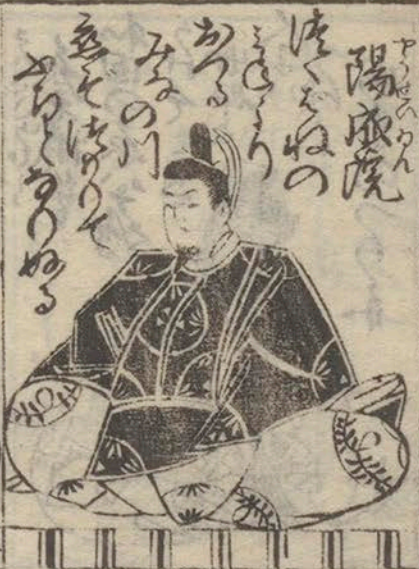 やうせゐのゐん
陽成院
つくばねの
みねより
おつる
みなの川
恋ぞつもりて
ふちとなりぬる